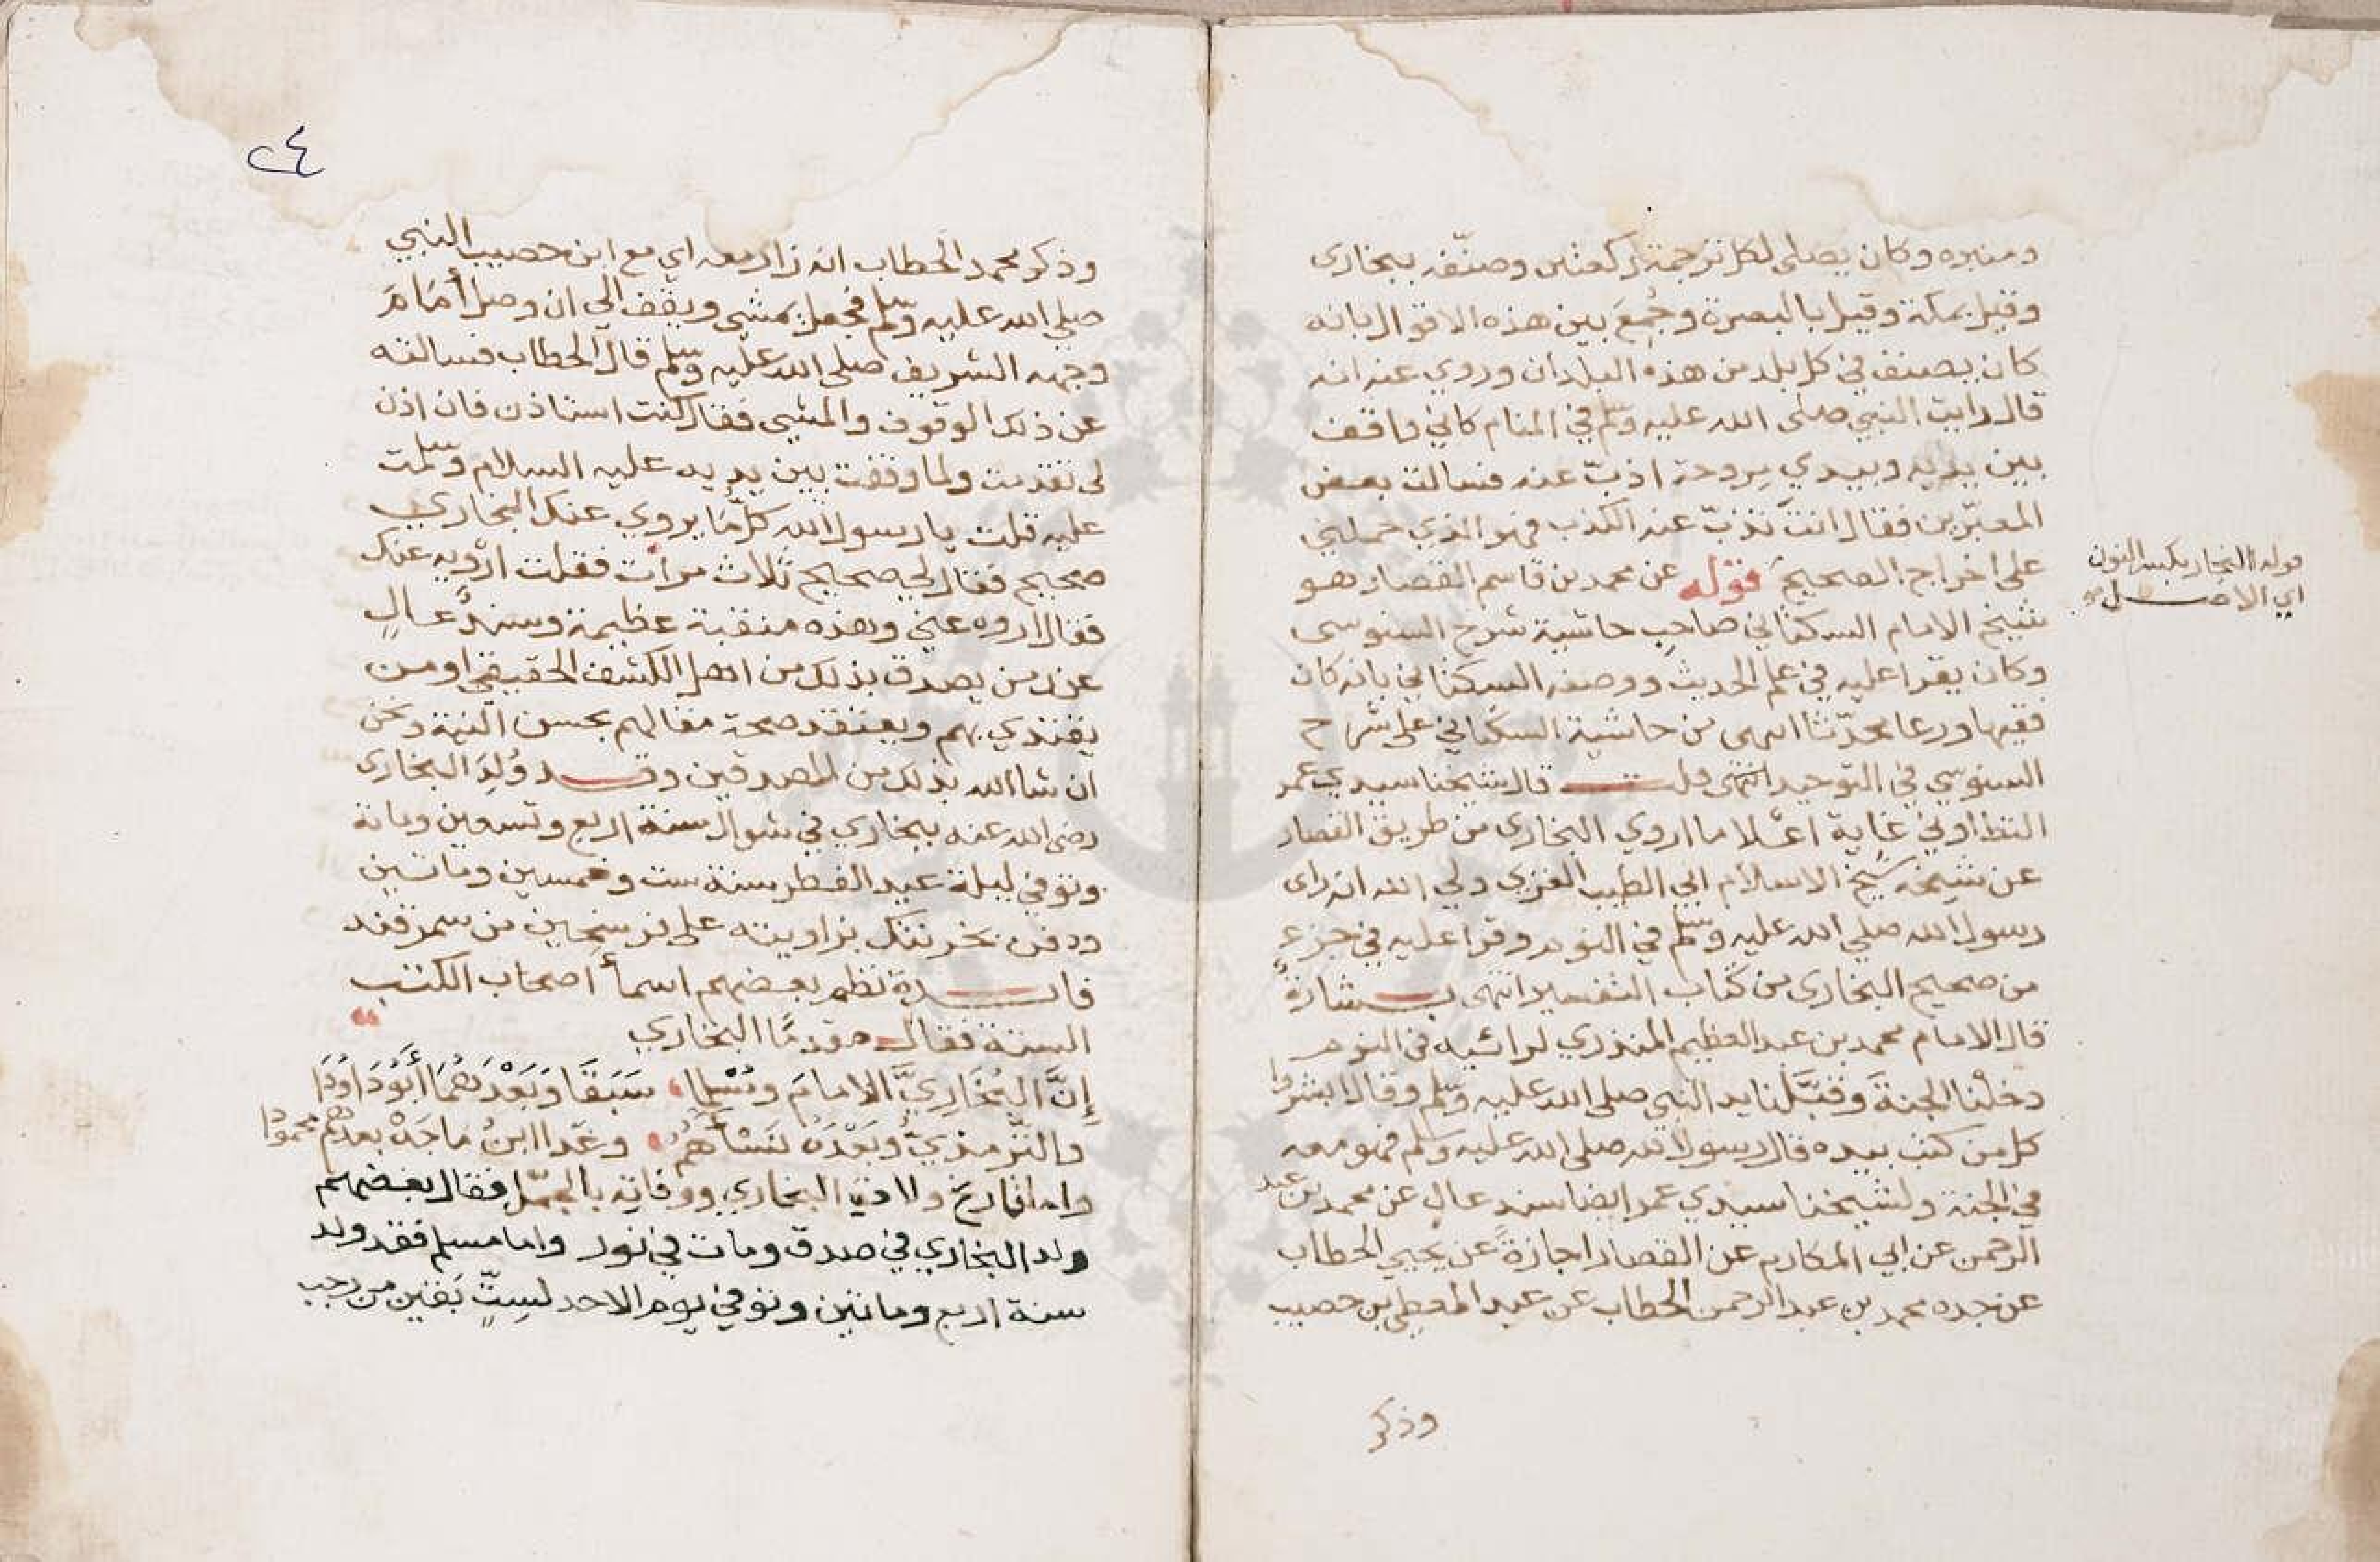 ومنبره وكان يصلى لكل ترجمة ركعتين وصنّفه ببخارى
وقيل بمكة وقيل بالبصرة وجُمِعَ بين هذه الاقوال بانه
كان يصنف في كل بلد من هذه البلدان وروي عنه انه
قال رايت النبي صلى الله عليه وسلم في المنام كاني واقف
بين يديه وبيدي مروحة اذبّ عنه فسالت بعض
المعبّرين فقال انت تذبّ عنه الكذب فهو الذي حملني
على اخراج الصحيح قوله عن محمد بن قاسم القصار هو
شيخ الامام السكتاني صاحب حاشية شرح السنوسى
وكان يقرا عليه في علم الحديث ووصفه السكتاني بانه كان
فقيها ورعا محدّثا انتهى من حاشية السكتاني على شراح
السنوسي في التوحيد انتهى قلت قال شيخنا سيدي عمر
التطاوني غاية اعتلا ما اروي البخارى من طريق القصار
عن شيخه شيخ الاسلام ابي الطيب الغزي ولي الله انه راى
رسول الله صلي الله عليه وسلم في النوم وقرا عليه في جزءٍ
من صحيح البخارى من كتاب التفسير انتهى بشارةٌ
قال الامام محمد بن عبد العظيم المنذري لرائيه في النوم
دخلْنا الجنة وقبّلنا يد النبي صلى الله عليه وسلم وقال ابشروا
كل من كتب بيده قال رسول الله صلى الله عليه وسلم فهو معه
في الجنة ولشيخنا سيدي عمر ايضا سند عال عن محمد بن عبد
الرحمن عن ابي المكارم عن القصار اجازةً عن يحيي الحطاب
عن جده محمد بن عبد الرحمن الحطاب عن عبد المعطي بن خصيب
وذكر
قوله النجار بكسر النون
اي الاصل
٢٤
وذكر محمد الحطاب انه زار معه اي مع ابن خصيب النبي
صلي الله عليه وسلم فجعل يمشي ويقف الي ان وصل أمَامَ
وجهه الشريف صلى الله عليه وسلم قال الحطاب فسالته
عن ذلك الوقوف والمشي فقال كنت استاذن فان اذن
لى تقدمت ولما وقفت بين يديه عليه السلام وسلمت
عليه قلت يا رسول الله كلّ مَا يروي عنك البخاري
صحيح فقال لي صحيح ثلاث مرات فقلت ارويه عنك
فقال اروه عني وهذه منقبة عظيمة وسندٌ عالٍ
عند من يصدق بذلك من اهل الكشف الحقيقي او من
يقتدي بهم ويعتقد صحة مقالهم بحسن النية ونحن
ان شا الله بذلك من المصدقين وقد وُلِدَ البخارى
رضى الله عنه ببخاري في شوال سنة اربع وتسعين ومائة
وتوفي ليلة عيد الفطر سنة ست وخمسين ومائتين
ودفن بخرتنك بزاويته على فرسخين من سمرقند
فائدة نظم بعضهم اسمأ اصحاب الكتب
الستة فقال مقدمًا البخاري
إنَّ البُخَارِيَّ الامامَ ومُسْلِما سَبَقَا وَبَعْدَهُمَا أَبُو دَاوُدَا
والتِّرمِذيُّ وبَعْدَهُ نَسَائهُمْ وغَدا ابنُ مَاجَهْ بعدهُمْ محمودا
واما تاريخ ولادة البخاري ووفاته بالجمّل فقال بعضهم
ولد البخاري في صدق ومات في نور واما مسلم فقد ولد
سنة اربع ومائتين وتوفي يوم الاحد لستّ بَقَين من رجب